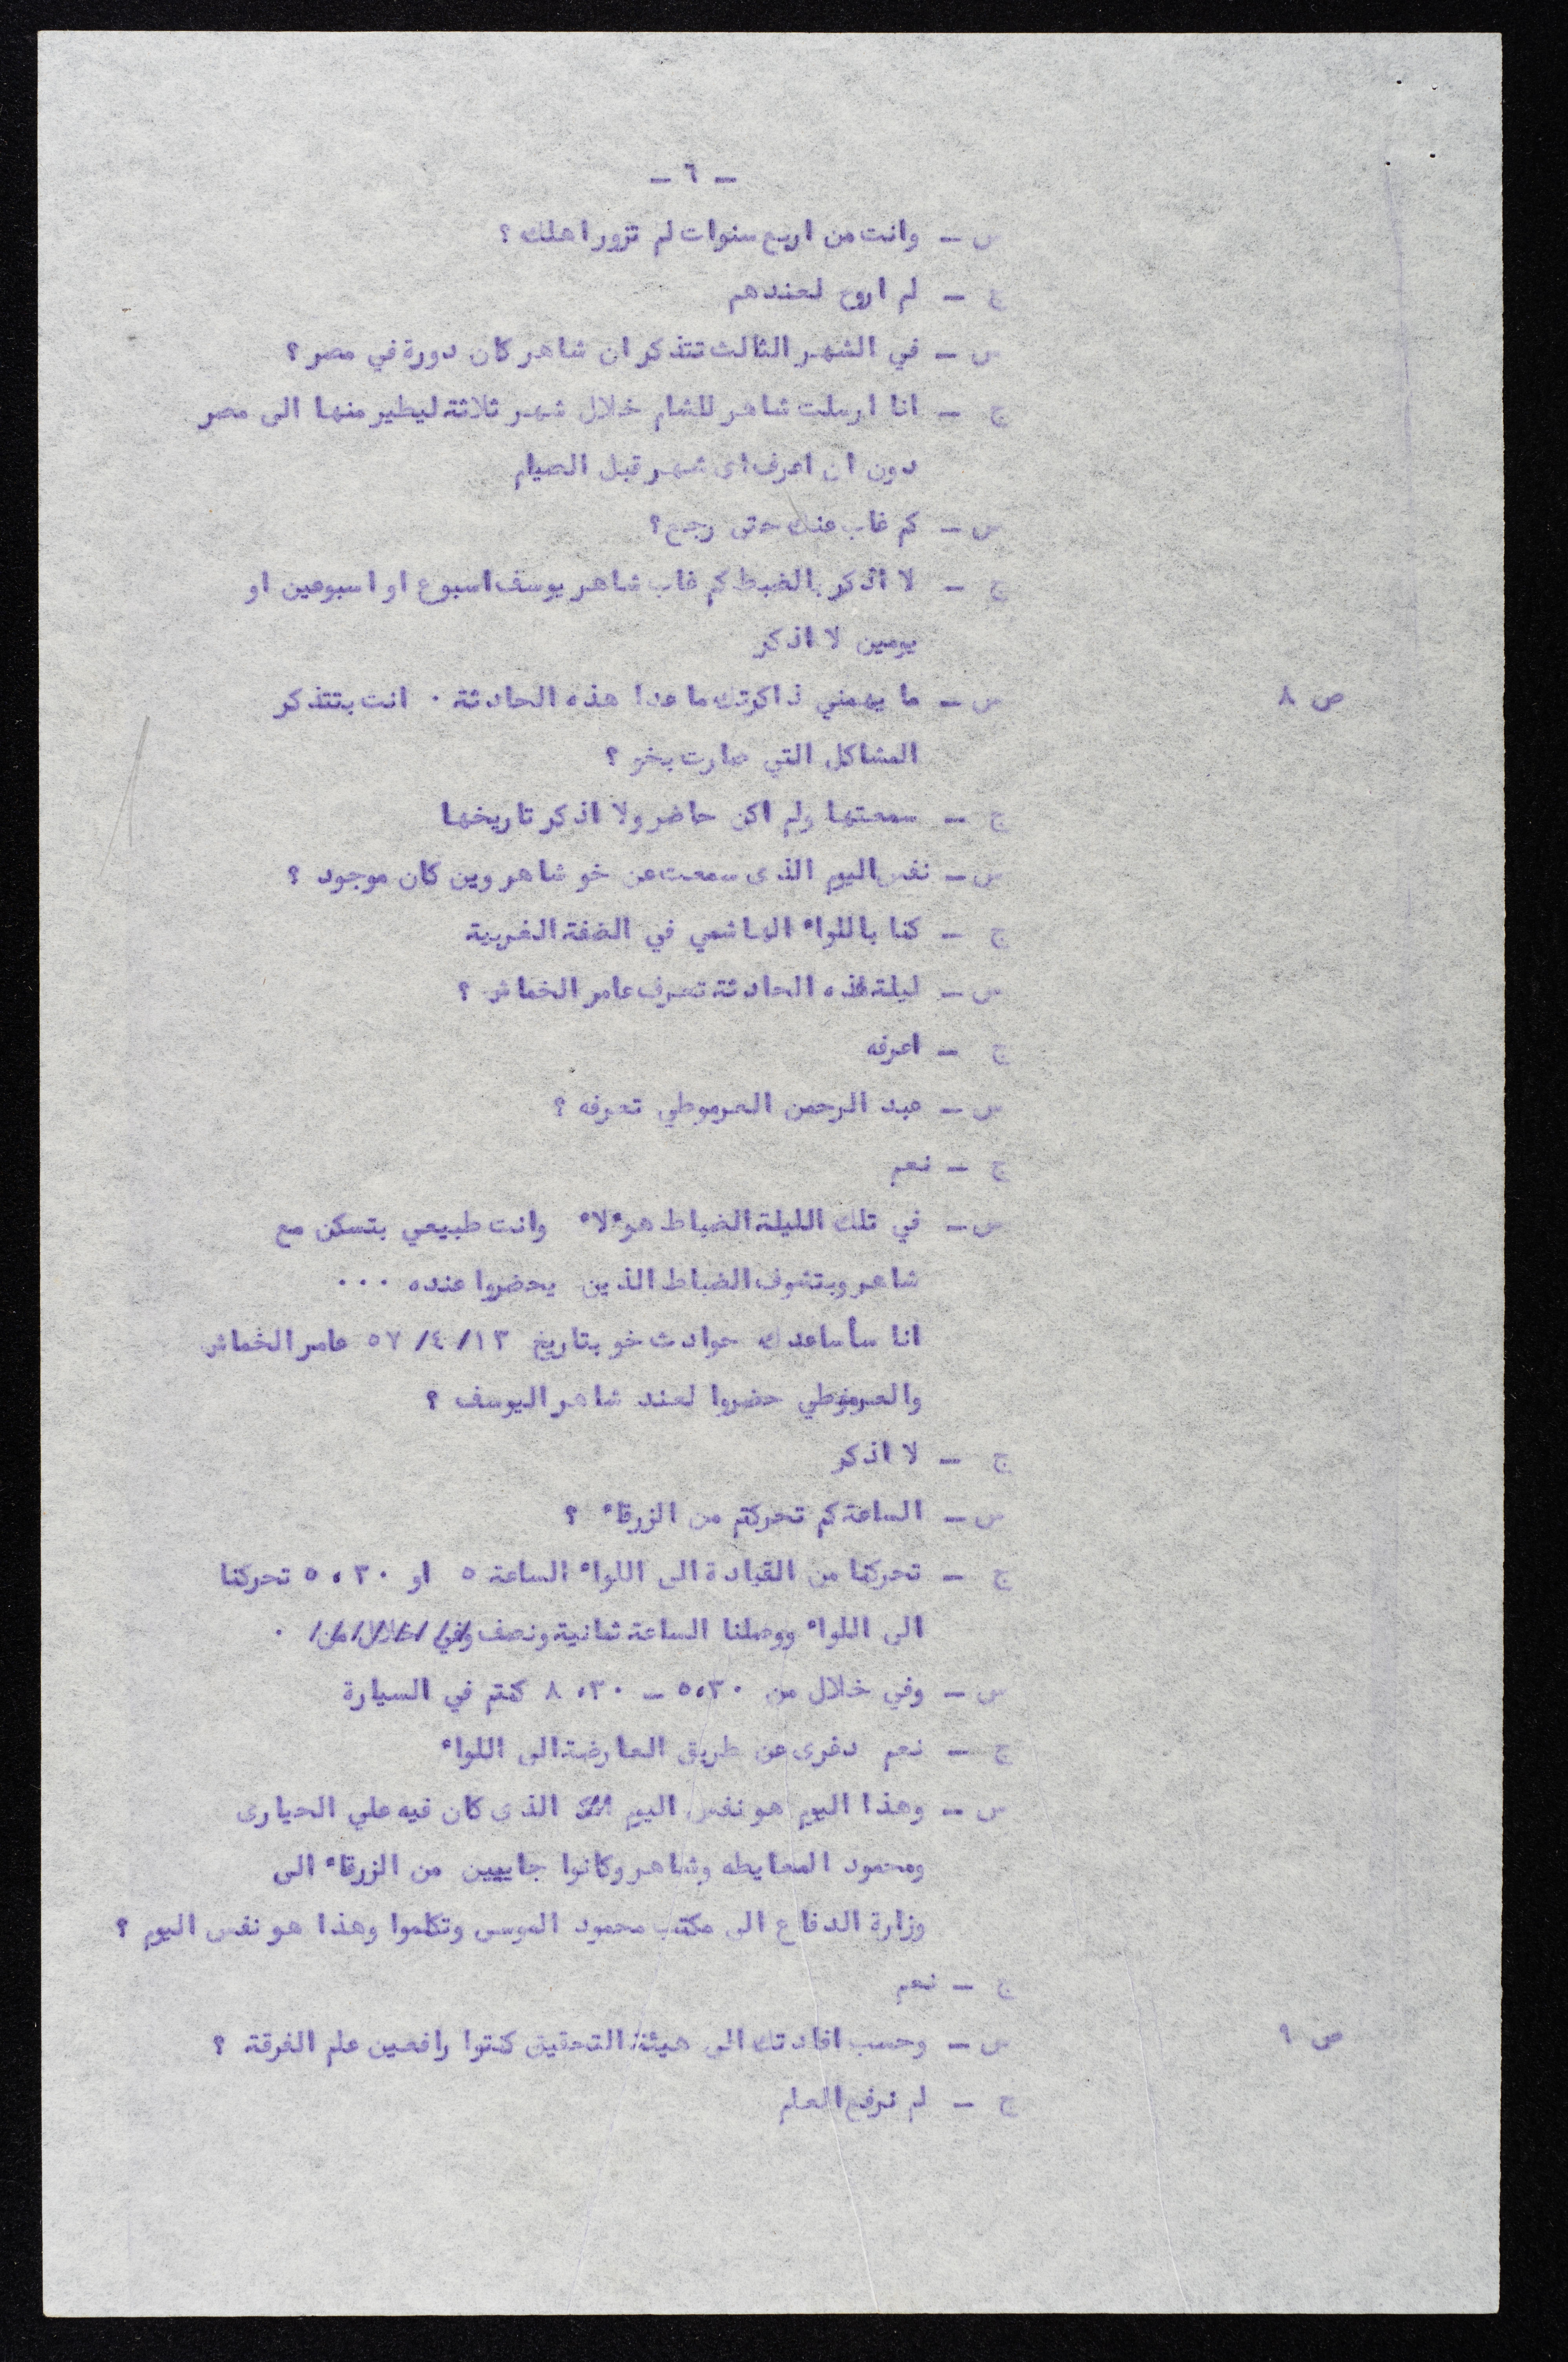 - ٦ -
س - وانت من اربع سنوات لم تزور اهلك ؟
ج - لم اروح لعندهم
س - في الشهر الثالث تتذكر ان شاهر كان دورة في مصر ؟
ج - انا ارسلت شاهر للشام خلال شهر ثلاثة ليطير منها الى مصر
دون ان اعرف اى شهر قبل الصيام
س - كم غاب عنك حتى رجع ؟
ج - لا اذكر بالضبط كم غاب شاهر يوسف اسبوع او اسبوعين او
يومين لا اذكر
ص ٨ س - ما يهمني ذاكرتك ما عدا هذه الحادثة . انت بتتذكر
المشاكل التي صارت بخو ؟
ج - سمعتها ولم اكن حاضر ولا اذكر تاريخها
س - نفس اليوم الذى سمعت عن خو شاهر وين كان موجود ؟
ج - كنا باللواء الهاشمي في الضفة الغربية
س - ليلة هذه الحادثة تعرف عامر الخماش ؟
ج - اعرفه
س - عبد الرحمن العرموطي تعرفه ؟
ج - نعم
س - في تلك الليلة الضباط هوءلاء وانت طبيعي بتسكن مع
شاهر وبتشوف الضباط الذين يحضروا عنده ...
انا سأساعدك حوادث خو بتاريخ ١٣ /٤ /٥٧ عامر الخماش
والعرموطي حضروا لعند شاهر اليوسف ؟
ج - لا اذكر
س - الساعة كم تحركتم من الزرقاء ؟
ج - تحركنا من القيادة الى اللواء الساعة ٥ او ٥،٣٠ تحركنا
الى اللواء ووصلنا الساعة ثمانية ونصف وفي خلال من .
س - وفي خلال من ٥،٣٠ - ٨،٣٠ كنتم في السيارة
ج - نعم دغرى عن طريق العارضة الى اللواء
س - وهذا اليوم هو نفس اليوم الذى كان فيه علي الحيارى
ومحمود المعايطه وشاهر وكانوا جايبين من الزرقاء الى
وزارة الدفاع الى مكتب محمود الموسى وتكلموا وهذا هو نفس اليوم ؟
ج - نعم
ص ٩ س - وحسب افادتك الى هيئة التحقيق كنتوا رافعين علم الفرقة ؟
ج - لم نرفع العلم